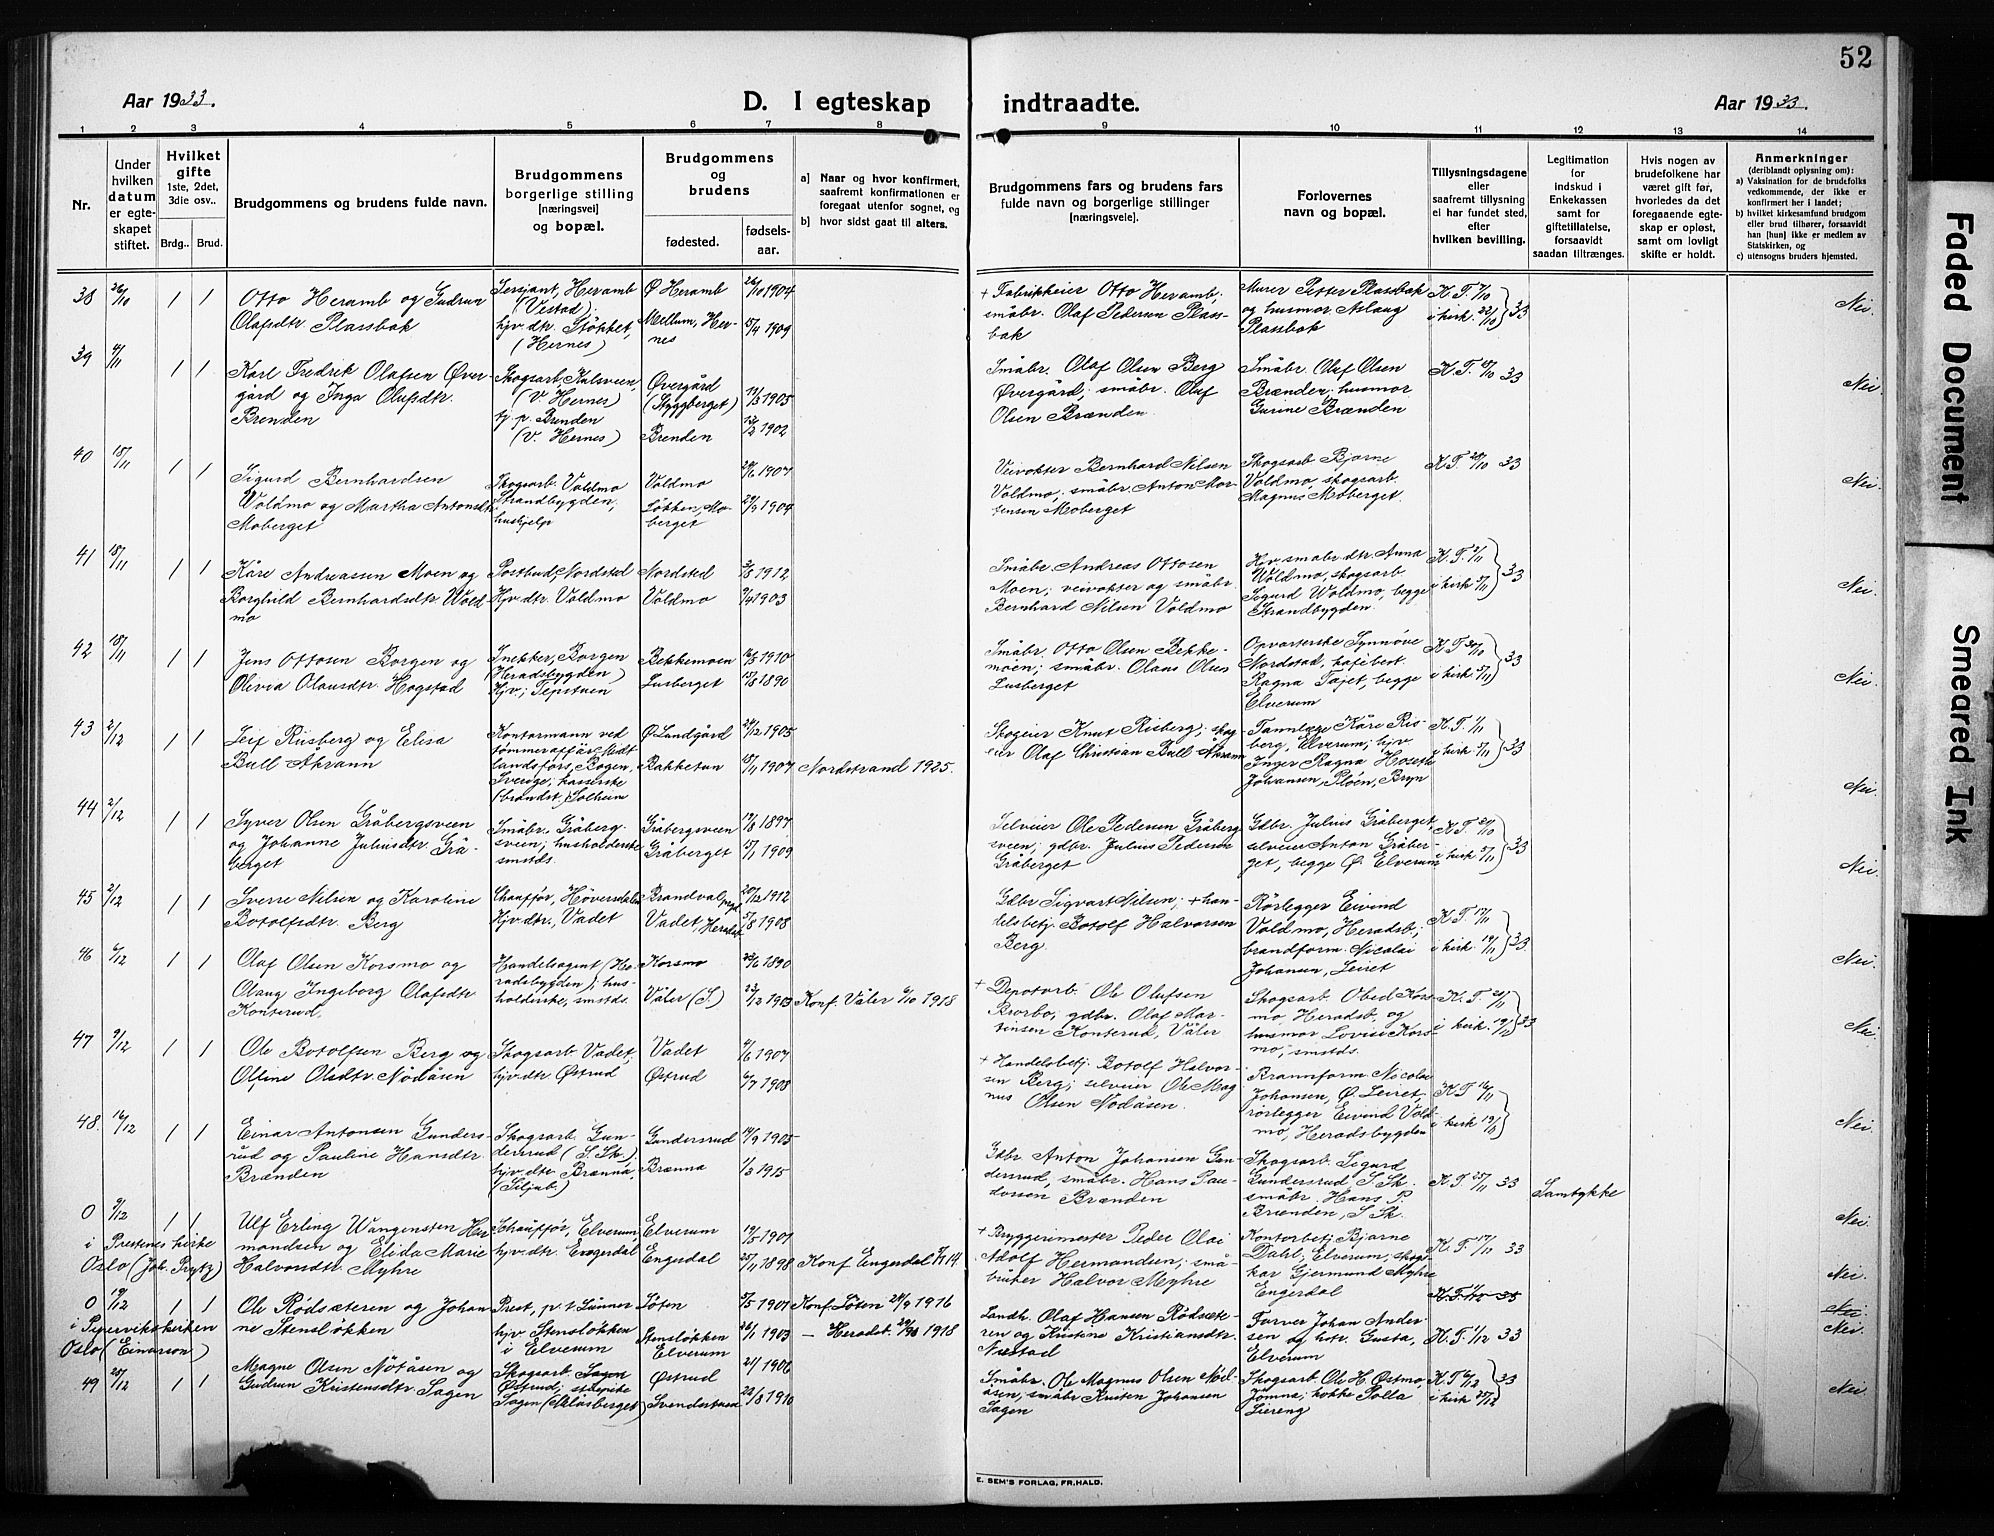 52
Aar 1933.
D. I egteskap indtraadte.
Aar 1933.
1 2 3 4 5 6 7 8 9 10 11 12 13 14
Nr.
Under hvilken datum er egteskapet stiftet.
Hvilket gifte
1ste, 2det, 3die osv..
Brdg.. Brud.
Brudgommens og brudens fulde navn.
Brudgommens borgerlige stilling [næringsvei] og bopæl.
Brudgommens og brudens
fødested.
fødselsaar.
a] Naar og hvor konfirmert, saafremt konfirmationen er foregaat utenfor sognet, og
b] hvor sidst gaat til alters.
Brudgommens fars og brudens fars fulde navn og borgerlige stillinger [næringsveie].
Forlovernes navn og bopæl.
Tillysningsdagene eller saafremt tillysning ei har fundet sted, efter hvilken bevilling.
Legitimation for indskud i Enkekassen samt for giftetillatelse, forsaavidt saadan tiltrænges.
Hvis nogen av brudefolkene har været gift før, hvorledes da det foregaaende egteskap er opløst, samt om lovligt skifte er holdt.
Anmerkninger (deriblandt oplysning om):
a) Vaksination for de brudefolks vedkommende, der ikke er konfirmert her i landet;
b) hvilket kirkesamfund brudgom eller brud tilhører, forsaavidt han [hun] ikke er medlem av Statskirken, og
c) utensogns bruders hjemsted.
38 26/10 1 1
Otto Heramb og Gudrun
Olafsdtr. Plassbak
Sersjant, Heramb
(Vestad);
hjv. dtr. Støkket,
(Hernes)
Ø Heramb 26/10 1904
Mellum, Hernes 15/4 1909
+ Fabrikkeier Otto Heramb;
småbr. Olaf Pedersen Plassbak
Murer Petter Plassbak
og husmor Aslaug
Plassbak
Nei.
39 4/11 1 1
Karl Fredrik Olafsen Øvergård
og Inga Olufsdtr.
Brenden
Skogsarb. Kalsveen,
(V Hernes)
tj. p. Brenden
(V. Hernes)
Øvergård
(Styggberget) 11/3 1905
Brenden 12/2 1902
Småbr. Olaf Olsen Berg
Øvergård; småbr. Oluf
Olsen Brænden.
Småbr. Oluf Olsen
Brænden; husmor
Gurine Brænden
Nei.
40 18/11 1 1
Sigurd Bernhardsen
Voldmo og Martha Antonsdtr.
Moberget
Skogsarb. Voldmo
Strandbygden;
hushjelp
Voldmo
Løkken, Moberget 29/9 1904
Veivokter Bernhard Nilsen
Voldmo; småbr. Anton Mortensen
Moberget
Skogsarb. Bjarne
Voldmo, skogsarb.
Magnus Moberget.
K.T. 28/10 33
Nei.
41 18/11 1 1
Kåre Andreassen Moen og
Borghild Bernhardsdtr. Voldmo
Postbud, Nordsted
Hjv. dtr. Voldmo
Nordsted 3/8 1912
Voldmo
Småbr. Andreas Ottosen
Moen; veivokter og småbr.
Bernhard Nilsen Voldmo
Hjv. småbr. dtr. Anna
Voldmo, skogsarb.
Sigurd Voldmo, begge
Strandbygden.
Nei.
42 18/11 1 1
Jens Ottosen Borgen og
Olivia Olausdtr. Hogstad
Snekker, Borgen
(Heradsbygden)
Hjv.; Tepstuen
Bekkemoen
Lusberget
Småbr. Otto Olsen Bekkemoen;
småbr. Olaus Olsen
Lusberget
Opvarterske Synnöve
Nordstad, kafébest.
Ragna Tajet, begge
Elverum
Nei.
43 2/12 1 1
Leif Risberg og Elisa
Bull Akrann
Kontormann ved
Sverige; kasserske
Solheim
Ø. Landgård 29/12 1905
Bakketun 18/11 1907
Nordstrand 1925.
Skogeier Knut Risberg; skogeier
Olaf Christian Bull Akrann
Tannlæge Kåre Risberg,
Elverum; hjv
Inger Ragna Hoseth
Johansen, Pløen, Bryn
Nei.
44 2/12 1 1
Syver Olsen Gråbergsveen
og Johanne Juliusdtr. Gråberget
Småbr. Gråbergsveen;
husholderske
smstds.
Gråbergsveen
Gråberget 15/1 1909
Selveier Ole Pedersen Gråbergsveen;
gdbr. Julius Pedersen
Gråberget
Gdbr. Julius Gråberget,
selveier Anton Gråberget,
begge Ø. Elverum
Nei.
45 2/12 1 1
Sverre Nilsen og Karoline
Botolfsdtr. Berg
Chauffør, Höversdalen
Hjv. dtr., Vadet
Brandval 20/12 1912
Vadet, Heradsb. 5/8 1908
Gdbr Sigvart Nilsen; + handelsbetj.
Botolf Halvorsen
Berg.
Rørlegger Eivind
Voldmo, Heradsb.;
brandform. Nicolai
Johansen, Leiret
Nei.
46 6/12 1 1
Olaf Olsen Korsmo og
Olaug Ingeborg Olafsdtr
Konterud.
Handelsagent (Heradsbygden);
husholderske, smstds.
Korsmo 23/6 1890
Våler (S) 23/12 1903
Konf. Våler 6/10 1918
+ Depotarb. Ole Olufsen
Brorbo; gdbr. Olaf Martinsen
Konterud, Våler
Skogsarb. Obed Korsmo
Heradsb, og
husmor Lovise Korsmo,
smstds.
Nei
47 9/12 1 1
Ole Botolfsen Berg og
Olfine Olsdtr. Nödåsen
Skogsarb. Vadet;
hjv. dtr Østrud
Vadet
Østrud 6/7 1908
+ Handelsbetj. Botolf Halvorsen
Berg; selveier Ole Magnus
Olsen Nödåsen.
Brannform. Nicolai
Johansen, Ø. Leiret,
rørlegger Eivind Voldmo,
Heradsbygden
Nei.
48. 16/12 1 1
Einar Antonsen Gundersrud
og Pauline Hansdtr.
Brænden
Skogsarb. Gundersrud
(S. Sk.)
hjv. dtr. Brænna,
(Siljub.)
Gundersrud 14/9 1905
Brænna 1/3 1915
Gdbr Anton Johansen Gundersrud,
småbr. Hans Paudossen
Brænden
Skogsarb. Sigurd
Gundersrud, S. Sk.
småbr. Hans P.
Brænden, S. Sk.
K.T. 25/11 33
Samtykke
Nei.
0 9/12 1 1
i Prestenes kirke
Oslo (Joh. Prytz)
Ulf Erling Wangensten Hermandsen
og Elida Marie
Halvorsdtr. Myhre
Schauffør, Elverum,
hjv. dtr. Engerdal
Elverum 19/5 1901
Engerdal 25/11 1898
+ Bryggerimester Peder Olai
Adolf Hermandsen; småbruker
Halvor Myhre
Kontorbetj. Bjarne
Dahl, Elverum;
Gjermund Myhre
Engerdal
K.T. 17/11 33
Nei.
0 19/12 1 1
i Pipervikskirken
Oslo (Einarson)
Ole Rödsæteren og Johanne
Stensløkken
Prest, p. t. Lunner
hjv Stensløkken
i Elverum
Løten 5/5 1901
Stensløkken
Elverum 26/1 1903
Konf. Løten 24/9 1916
Landh. Olaf Hansen Rödsæteren
og Kristine Kristiansdtr.
Næstad
Farver Johan Andersen
og htr. Gusta,
Elverum
K.T. 1/12 33
Nei
Nei.
49 25/12 1 1
Magne Olsen Nötåsen og
Gudrun Kristensdtr Sagen
Skogsarb. Sagen
Østrud;
Sagen
Østrud
Småbr. Ole Magnus Olsen Nötåsen,
småbr Kristen Johansen
Sagen
Skogsarb. Ole H. Østmo,
Jömna; kokke Polla
Liereng
Nei.
E. SEM'S FORLAG, FR.HALD.
Faded Document
Smeared Ink